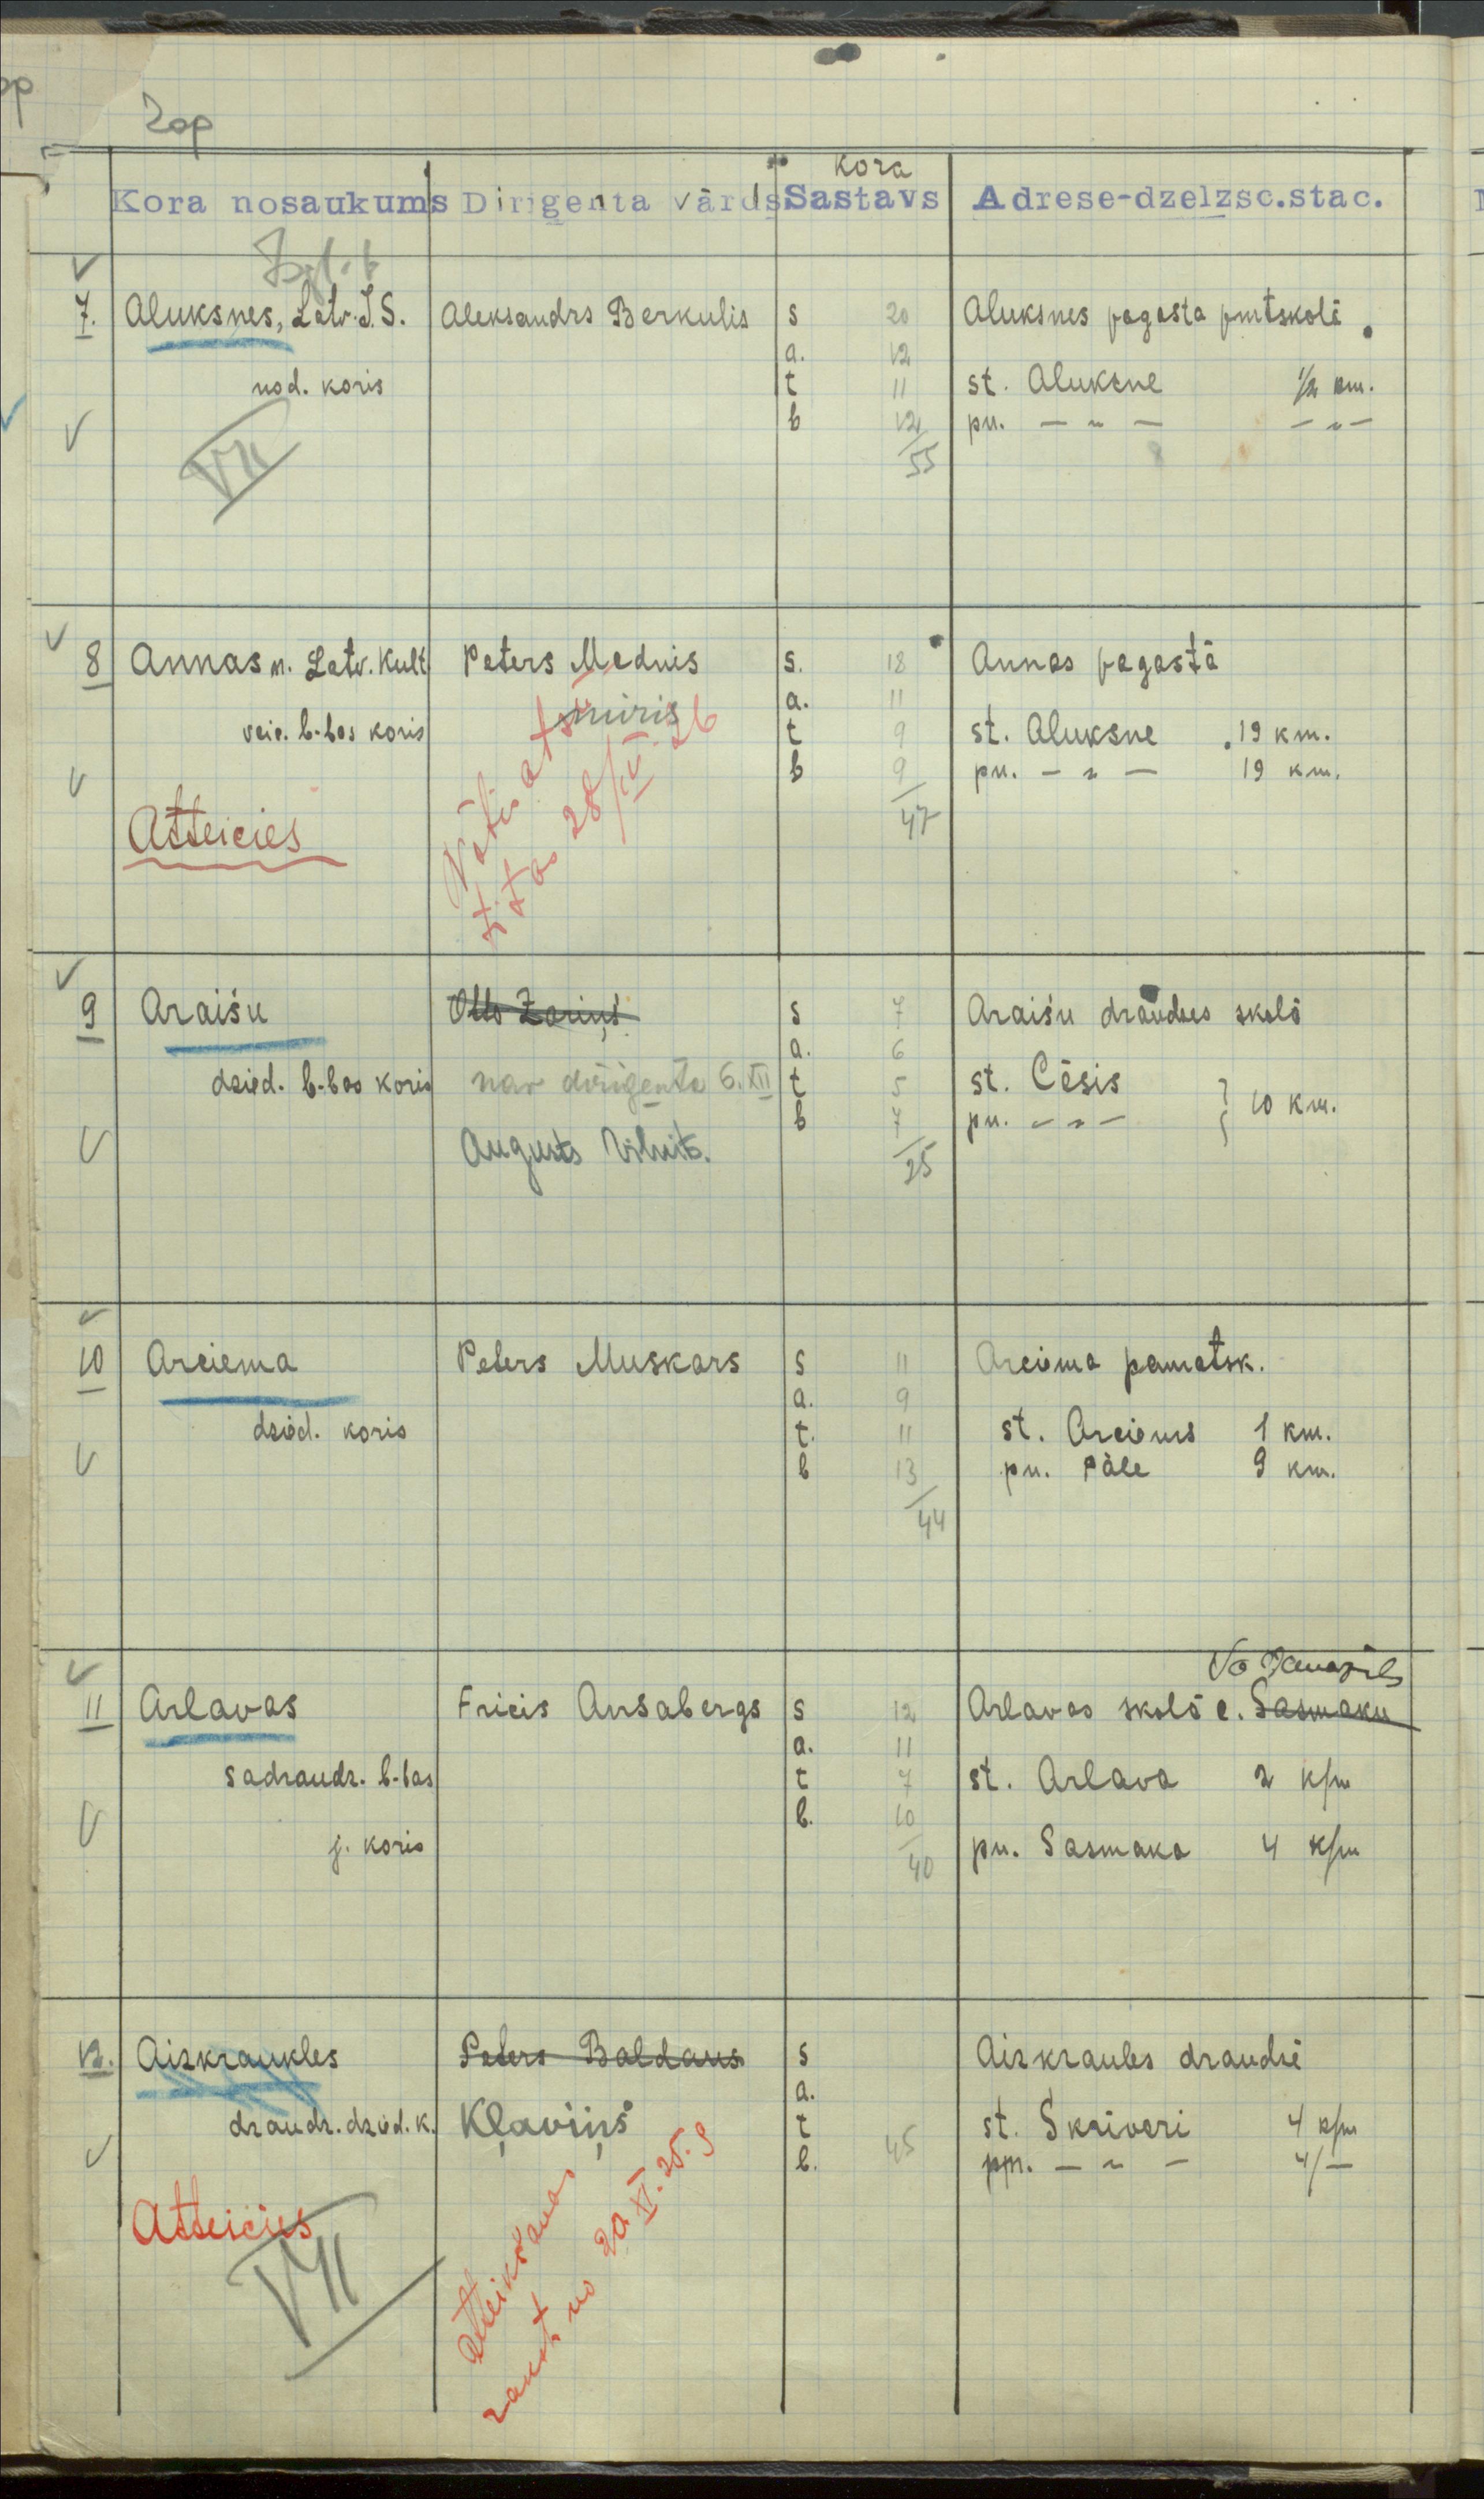 Zop
Kora
Kora nosaukums Dirigenta vārds Sastavs Adrese-dzelzsc.stac.
7. Aluksnes, Latv. J.S. Aleksandrs Berkulis s 20 Aluksnes pagasta pmtskolā
a. 12
nod. koris t 11 st. Aluksne 1/2 km.
b 12 pn. — „ — — „ —
55
VII
8 Annas n. Latv. Kult Peters Mednis s. 18 Annas pagastā
miris a. 11
veic. b-bas koris t 9 st. Aluksne 19 km.
b 9 pn. — „ — 19 km.
47
Atteicies
28/IV. 26
9 Araišu Otto Zariņš s 7 Araišu draudzes skolā
a. 6
dzied. b-bas koris nav dirigenta 6. XII t 5 st. Cēsis
b 7 pn. — „ — } 10 km.
Augusts
25
10 Arciema Peters Muskars s 11 Arciema pamatsk.
a. 9
dzied. koris t. 11 st. Arciems 1 km.
b 13 pn. Pāle 9 km.
44
11 Arlavas Fricis Ansabergs s 12 Arlavas skolā c. Sasmaku
a. 11
sadraudz. b-bas t 7 st. Arlava 2 k/m
b. 10
j. koris pn. Sasmaka 4 k/m
40
12. Aizkraukles Peters Baldaus s Aizkraules draudzē
a.
draudz. dzied. k. Kļaviņš t st. Skrīveri 4 k/m
b. 45 pn. — „ — 4/—
Atteicies
VII
atteikšanas
no 20. XI. 25. g